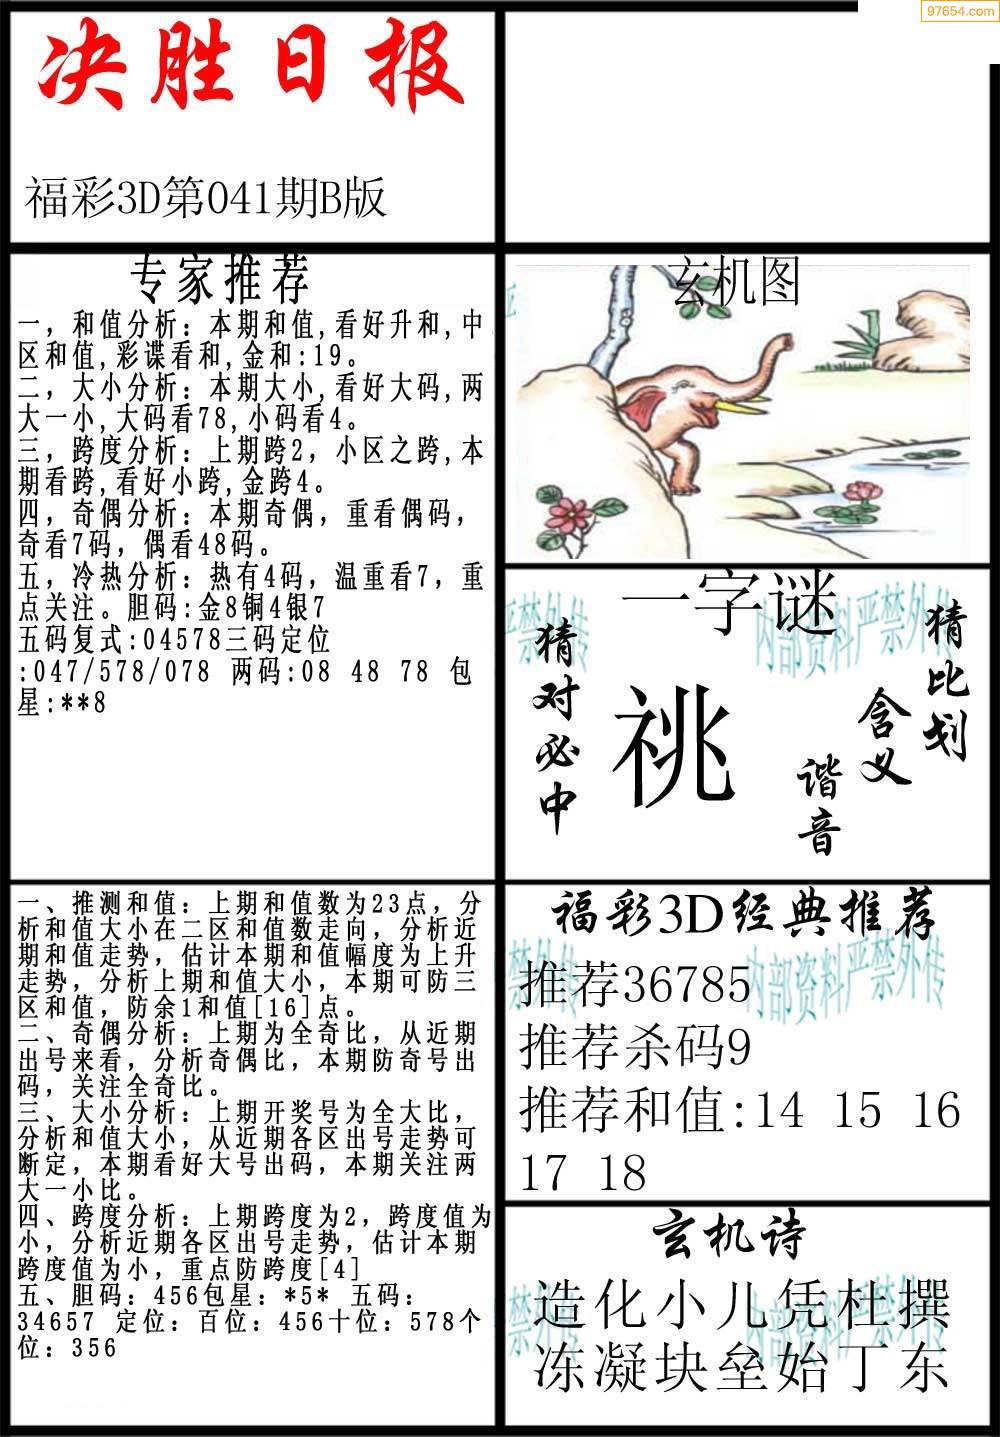 97654.com
决胜日报
福彩3D第041期B版
专家推荐
一，和值分析：本期和值,看好升和,中
区和值,彩谍看和,金和:19。
二，大小分析：本期大小,看好大码,两
大一小,大码看78,小码看4。
三，跨度分析：上期跨2，小区之跨,本
期看跨,看好小跨,金跨4。
四，奇偶分析：本期奇偶，重看偶码，
奇看7码，偶看48码。
五，冷热分析：热有4码，温重看7，重
点关注。胆码:金8铜4银7
五码复式:04578三码定位
:047/578/078 两码:08 48 78 包
星:**8
玄机图
一字谜
猜对必中
祧
谐音
含义
猜比划
内部资料严禁外传
一、推测和值：上期和值数为23点，分
析和值大小在二区和值数走向，分析近
期和值走势，估计本期和值幅度为上升
走势，分析上期和值大小，本期可防三
区和值，防余1和值[16]点。
二、奇偶分析：上期为全奇比，从近期
出号来看，分析奇偶比，本期防奇号出
码，关注全奇比。
三、大小分析：上期开奖号为全大比，
分析和值大小，从近期各区出号走势可
断定，本期看好大号出码，本期关注两
大一小比。
四、跨度分析：上期跨度为2，跨度值为
小，分析近期各区出号走势，估计本期
跨度值为小，重点防跨度[4]
五、胆码：456包星：*5* 五码：
34657 定位：百位：456十位：578个
位：356
福彩3D经典推荐
推荐36785
推荐杀码9
推荐和值:14 15 16
17 18
内部资料严禁外传
玄机诗
造化小儿凭杜撰
冻凝块垒始丁东
内部资料严禁外传